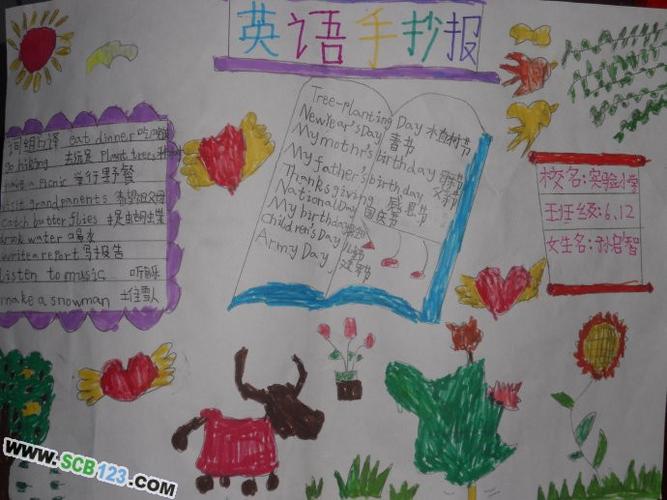 英语手抄报
词组与译 eat dinner 吃晚饭
go hiking Plant trees
have a Picnic 举行野餐
visit grandparents
catch butterflies
drink water 喝水
write a report 写报告
listen to music 听音乐
make a snowman
Tree-Planting Day
NewYear's Day 春节
My mothr's birthday
My father's birthday
Thanksgiving 感恩节
National Day 国庆节
My birthday
Children's Day
Army Day
校名:实验小学
班级:6.12
生名:孙启智
www.SCB123.COM